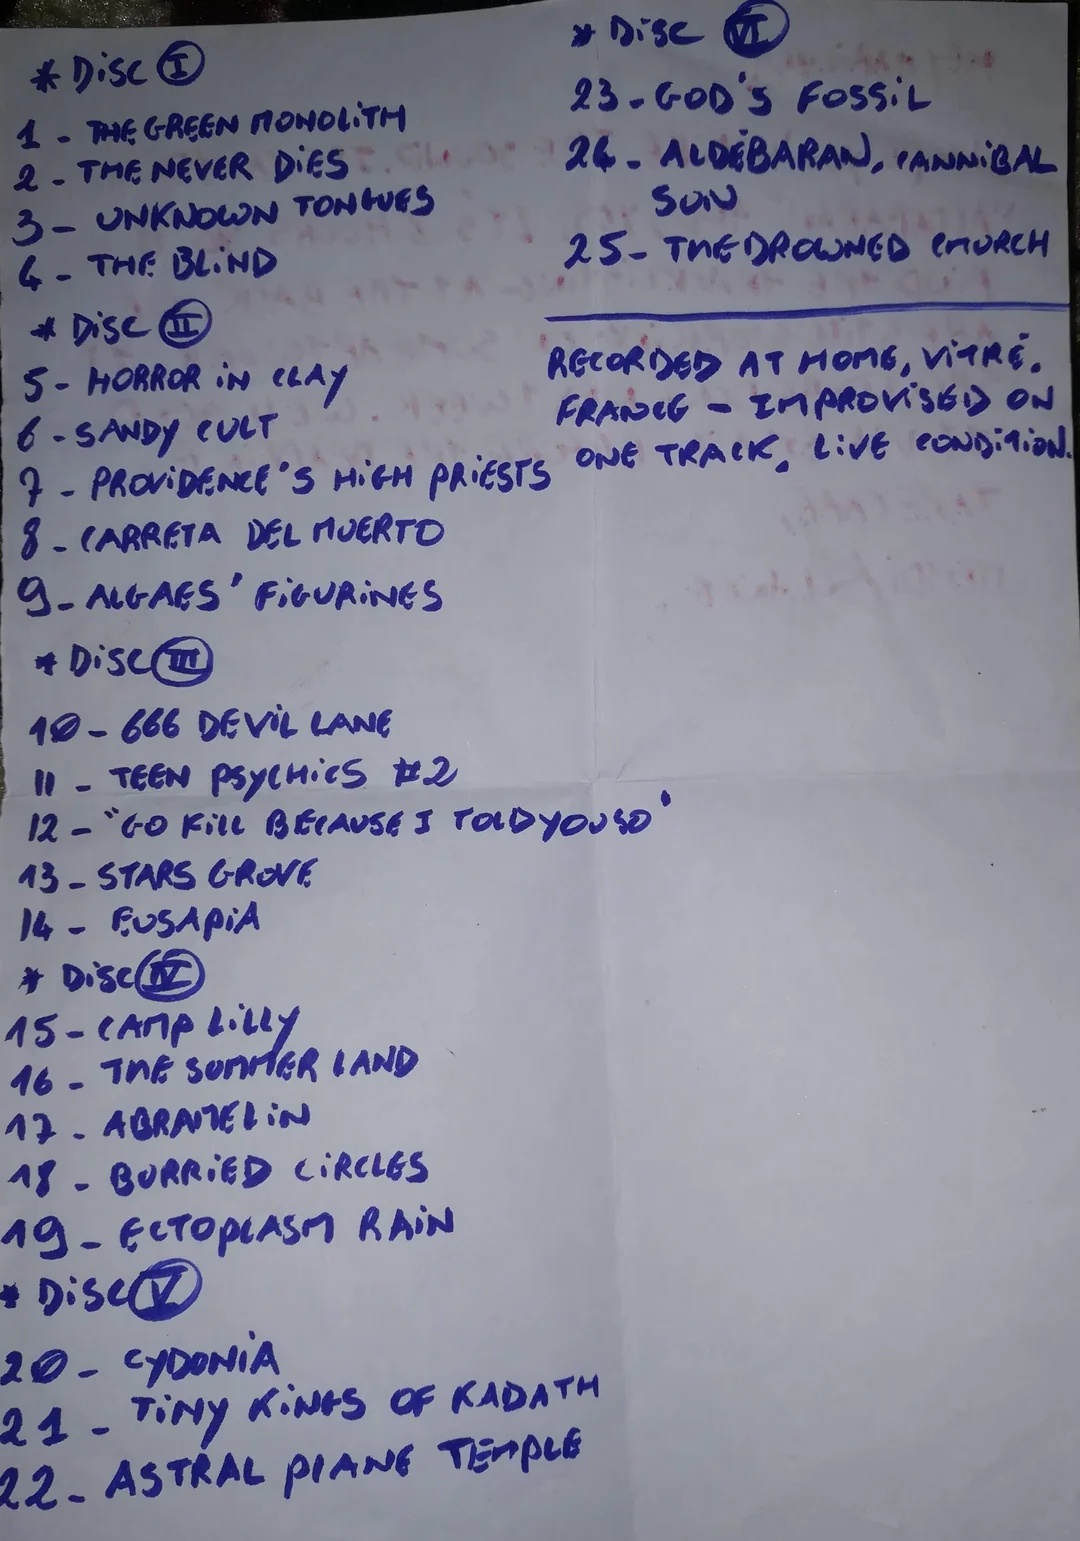 * Disc I
1 - THE GREEN MONOLITH
2 - THE NEVER DIES
3 - UNKNOWN TONGUES
4 - THE BLIND
* Disc II
5 - HORROR IN CLAY
6 - SANDY CULT
7 - PROVIDENCE'S HIGH PRIESTS
8 - CARRETA DEL MUERTO
9 - ALGAES' FIGURINES
* Disc III
10 - 666 DEVIL LANE
11 - TEEN PSYCHICS #2
12 - "GO KILL BECAUSE I TOLD YOU SO"
13 - STARS GROVE
14 - EUSAPIA
* Disc IV
15 - CAMP LILLY
16 - THE SUMMER LAND
17 - ABRAMELIN
18 - BURRIED CIRCLES
19 - ECTOPLASM RAIN
* Disc V
20 - CYDONIA
21 - TINY KINGS OF KADATH
22 - ASTRAL PLANE TEMPLE
* Disc VI
23 - GOD'S FOSSIL
24 - ALDEBARAN, CANNIBAL
SUN
25 - THE DROWNED CHURCH
RECORDED AT HOME, VITRÉ,
FRANCE - IMPROVISED ON
ONE TRACK, LIVE CONDITION.